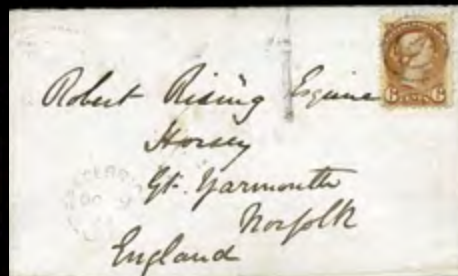 Robert Rising Esquire
Horsey
Gt. Yarmouth
Norfolk
England
6 CENTS 6